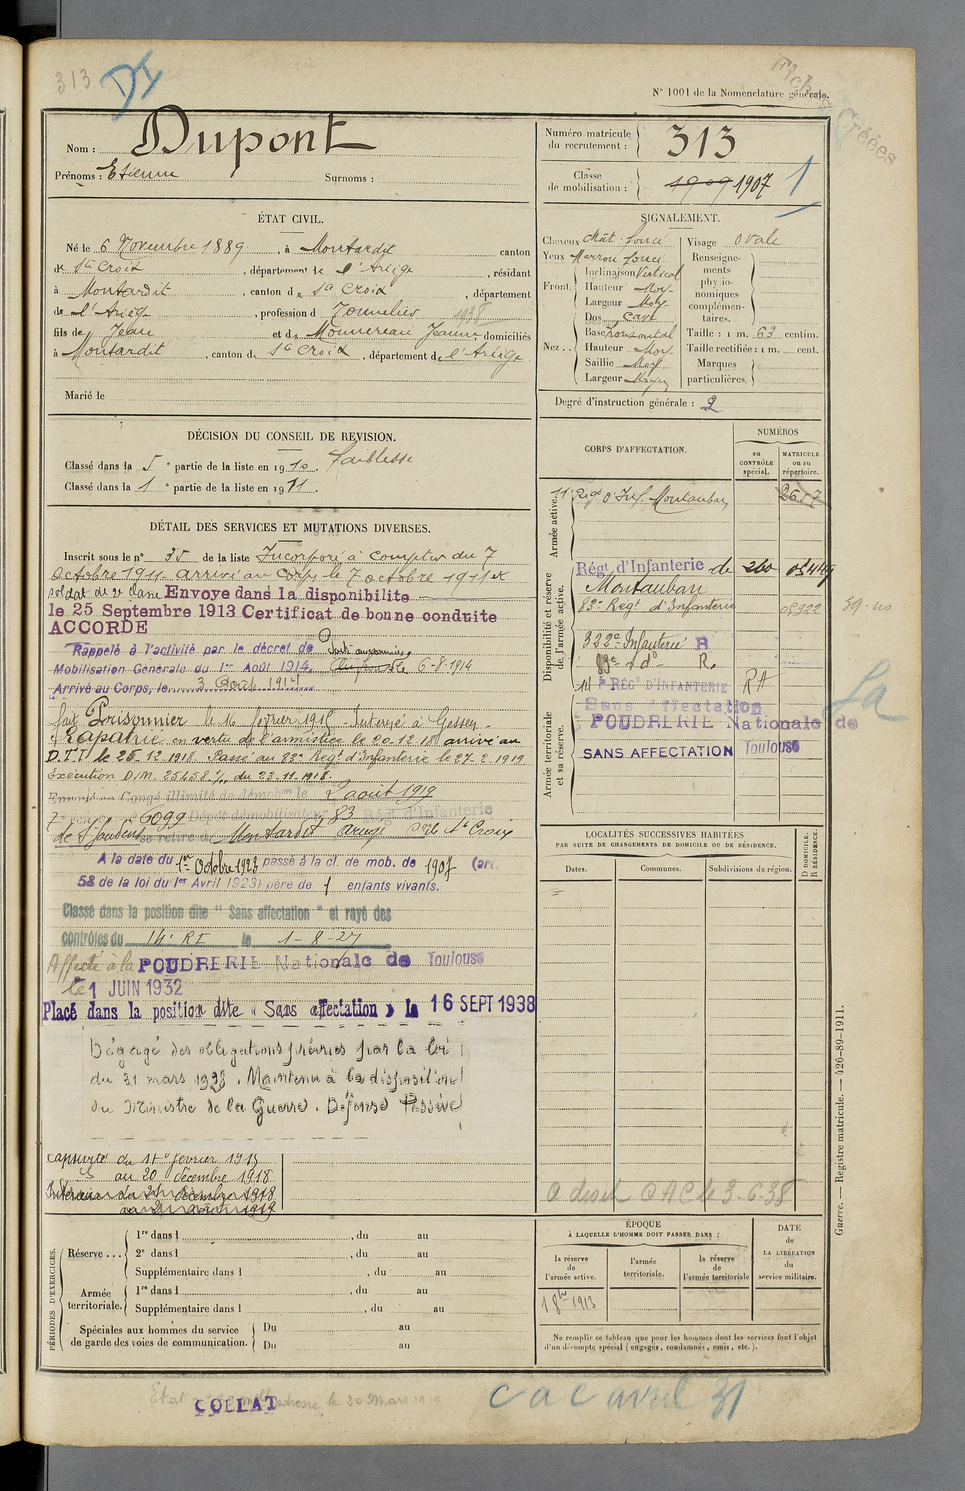 313
N° 1001 de la Nomenclature générale.
Fiches Créées
Nom : Dupont
Prénoms : Etienne Surnoms :
Numéro matricule du recrutement : 313
Classe de mobilisation : 1909 1907
1
ÉTAT CIVIL.
Né le 6 Novembre 1889, à Montardit canton
de Ste Croix, département de l'Ariège, résidant
à Montardit, canton de Ste Croix, département
de l'Ariège, profession d 1938
fils de Jean et de Jeanne domiciliés
à Montardit, canton de Ste Croix, département de l'Ariège
Marié le
SIGNALEMENT.
Cheveux chât. foncé
Yeux Marron foncé
Front. Inclinaison Vertical
Hauteur Moy.
Largeur Moy.
Nez. Dos cave
Base horizontal
Hauteur Moy.
Saillie Moy.
Largeur Moyen
Visage Ovale
Renseignements physionomiques complémentaires.
Taille : 1 m. 63 centim.
Taille rectifiée : 1 m. cent.
Marques particulières.
Degré d'instruction générale : 2
DÉCISION DU CONSEIL DE REVISION.
Classé dans la 5e partie de la liste en 1910. Faiblesse
Classé dans la 1e partie de la liste en 1911.
DÉTAIL DES SERVICES ET MUTATIONS DIVERSES.
Inscrit sous le n° 35 de la liste Incorporé à compter du 7
octobre 1911 arrivé au corps le 7 octobre 1911 et
soldat de 2e classe Envoye dans la disponibilite
le 25 Septembre 1913 Certificat de bonne conduite
ACCORDE
Rappelé à l'activité par le décret de
Mobilisation Générale du 1er Août 1914. 6-8-1914
Arrivé au Corps, le 3 Août 1914
fait Prisonnier le 16 février 1915 Interné à Gessen
Rapatrié en vertu de l'armistice le 20.12.18 arrivé au
D.T.I. le 26-12-1918. Passé au 83e Régt d'Infanterie le 27-2-1919
Exécution D/M. 25458 1/11 du 23-11-1918.
Envoyé en Congé illimité de démobon le 2 août 1919
6099 Dépôt démobilisateur 83 Rég d'Infanterie
de St Gaudens se retire à Montardit
A la date du 1er Octobre 1923 passé à la cl. de mob. de 1907 (art.
58 de la loi du 1er Avril 1923) père de 1 enfants vivants.
Classé dans la position dite " Sans affectation " et rayé des
contrôles du 14e RI le 1-8-27
Affecté à la POUDRERIE Nationale de Toulouse
le 1 JUIN 1932
Placé dans la position dite « Sans affectation » le 16 SEPT 1938
Dégagé des obligations prévues par la loi
du 31 mars 1928. Maintenu à la disposition
du Ministre de la Guerre. Défense Passive
Captivité du 16 février 1915
au 20 décembre 1918
Intérieur du 21 décembre 1918
CORPS D'AFFECTATION.
NUMÉROS
au CONTRÔLE spécial.
MATRICULE ou au répertoire.
Armée active.
11e Régt d'Inf. Montauban 2617
Disponibilité et réserve de l'armée active.
Régt d'Infanterie de
Montauban
83e Régt d'Infanterie 05922
322e Infanterie R
83e d° R.
Armée territoriale et sa réserve.
14e RÉGt D'INFANTERIE RA
Sans Affectation
POUDRERIE Nationale de
SANS AFFECTATION Toulouse
LOCALITÉS SUCCESSIVES HABITÉES
PAR SUITE DE CHANGEMENTS DE DOMICILE OU DE RÉSIDENCE.
Dates. Communes. Subdivisions de région. D DOMICILE. R RÉSIDENCE.
CAC le 3-6-38
PÉRIODES D'EXERCICES.
Réserve ... 1re dans l , du au
2e dans l , du au
Supplémentaire dans l , du au
Armée territoriale. 1re dans l , du au
Supplémentaire dans l , du au
Spéciales aux hommes du service de garde des voies de communication. Du au
Du au
ÉPOQUE
À LAQUELLE L'HOMME DOIT PASSER DANS :
la réserve de l'armée active.
l'armée territoriale.
la réserve de l'armée territoriale
DATE de LA LIBÉRATION du service militaire.
1 8bre 1913
Ne remplir ce tableau que pour les hommes dont les services font l'objet
d'un décompte spécial (engagés, condamnés, omis, etc.).
Guerre. — Registre matricule. — 426-89-1911.
COLLAT
adressé le 30 Mars 1919
cac avril 31